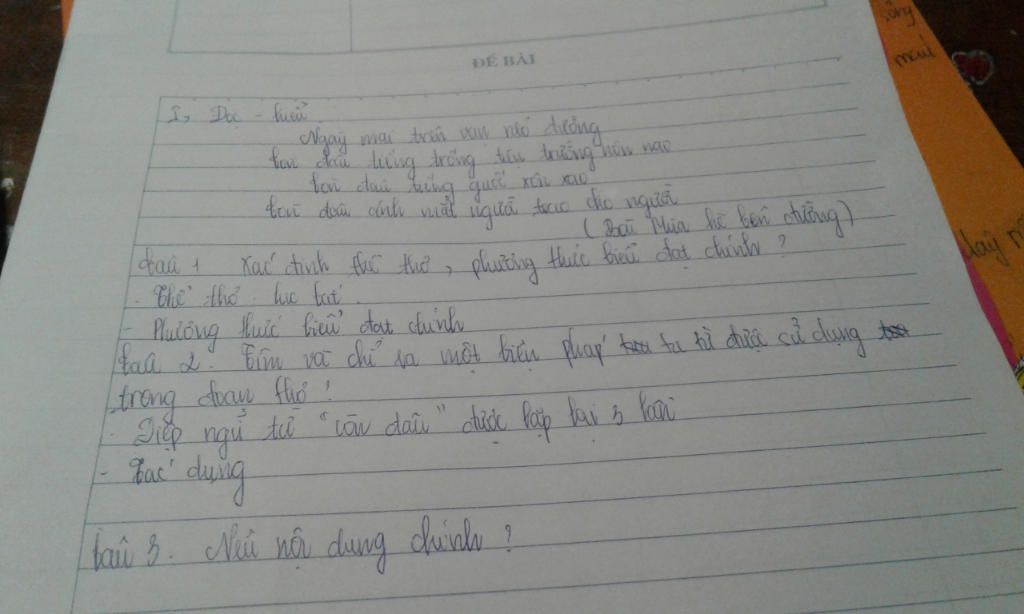 ĐỀ BÀI
I, Đọc - hiểu.
Ngày mai trên vạn nẻo đường
Còn đâu tiếng trống tựu trường hôm nao
Còn đâu tiếng guốc xôn xao
Còn đâu ánh mắt người trao cho người
(Bài Mùa hè bên đường)
Câu 1 Xác định thể thơ, phương thức biểu đạt chính?
- Thể thơ: lục bát.
- Phương thức biểu đạt chính
Câu 2. Tìm và chỉ ra một biện pháp tu từ được sử dụng
trong đoạn thơ?
- Điệp ngữ từ "còn đâu" được lặp lại 3 lần
- Tác dụng
Câu 3. Nêu nội dung chính?
sống
mãi